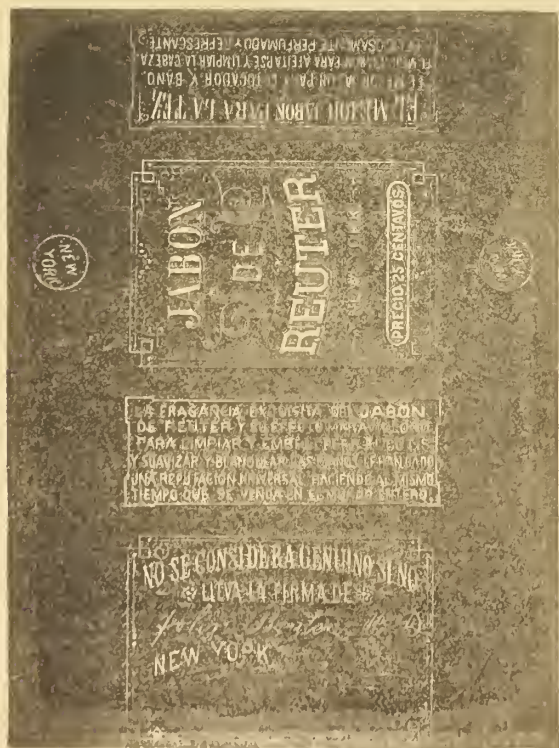 EL MEJOR JABON PARA LA TEZ
EL MEJOR JABON PARA EL TOCADOR Y BANO.
EL MEJOR JABON PARA AFEITARSE Y LIMPIAR LA CABEZA
PERFUMADO Y REFRESCANTE
NEW
YORK
JABON
DE
REUTER
NEW YORK
PRECIO, 25 CENTAVOS.
LA FRAGANCIA EXQUISITA DEL JABON
DE REUTER Y SU EFECTO
PARA LIMPIAR Y EMBELLECER EL CUTIS
Y SUAVIZAR Y BLANQUEAR LAS MANOS LE HAN DADO
UNA REPUTACION UNIVERSAL HACIENDO AL MISMO
TIEMPO QUE SE VENDA EN EL MUNDO ENTERO.
NO SE CONSIDERA GENUINO SI NO
LLEVA LA FIRMA DE
NEW YORK